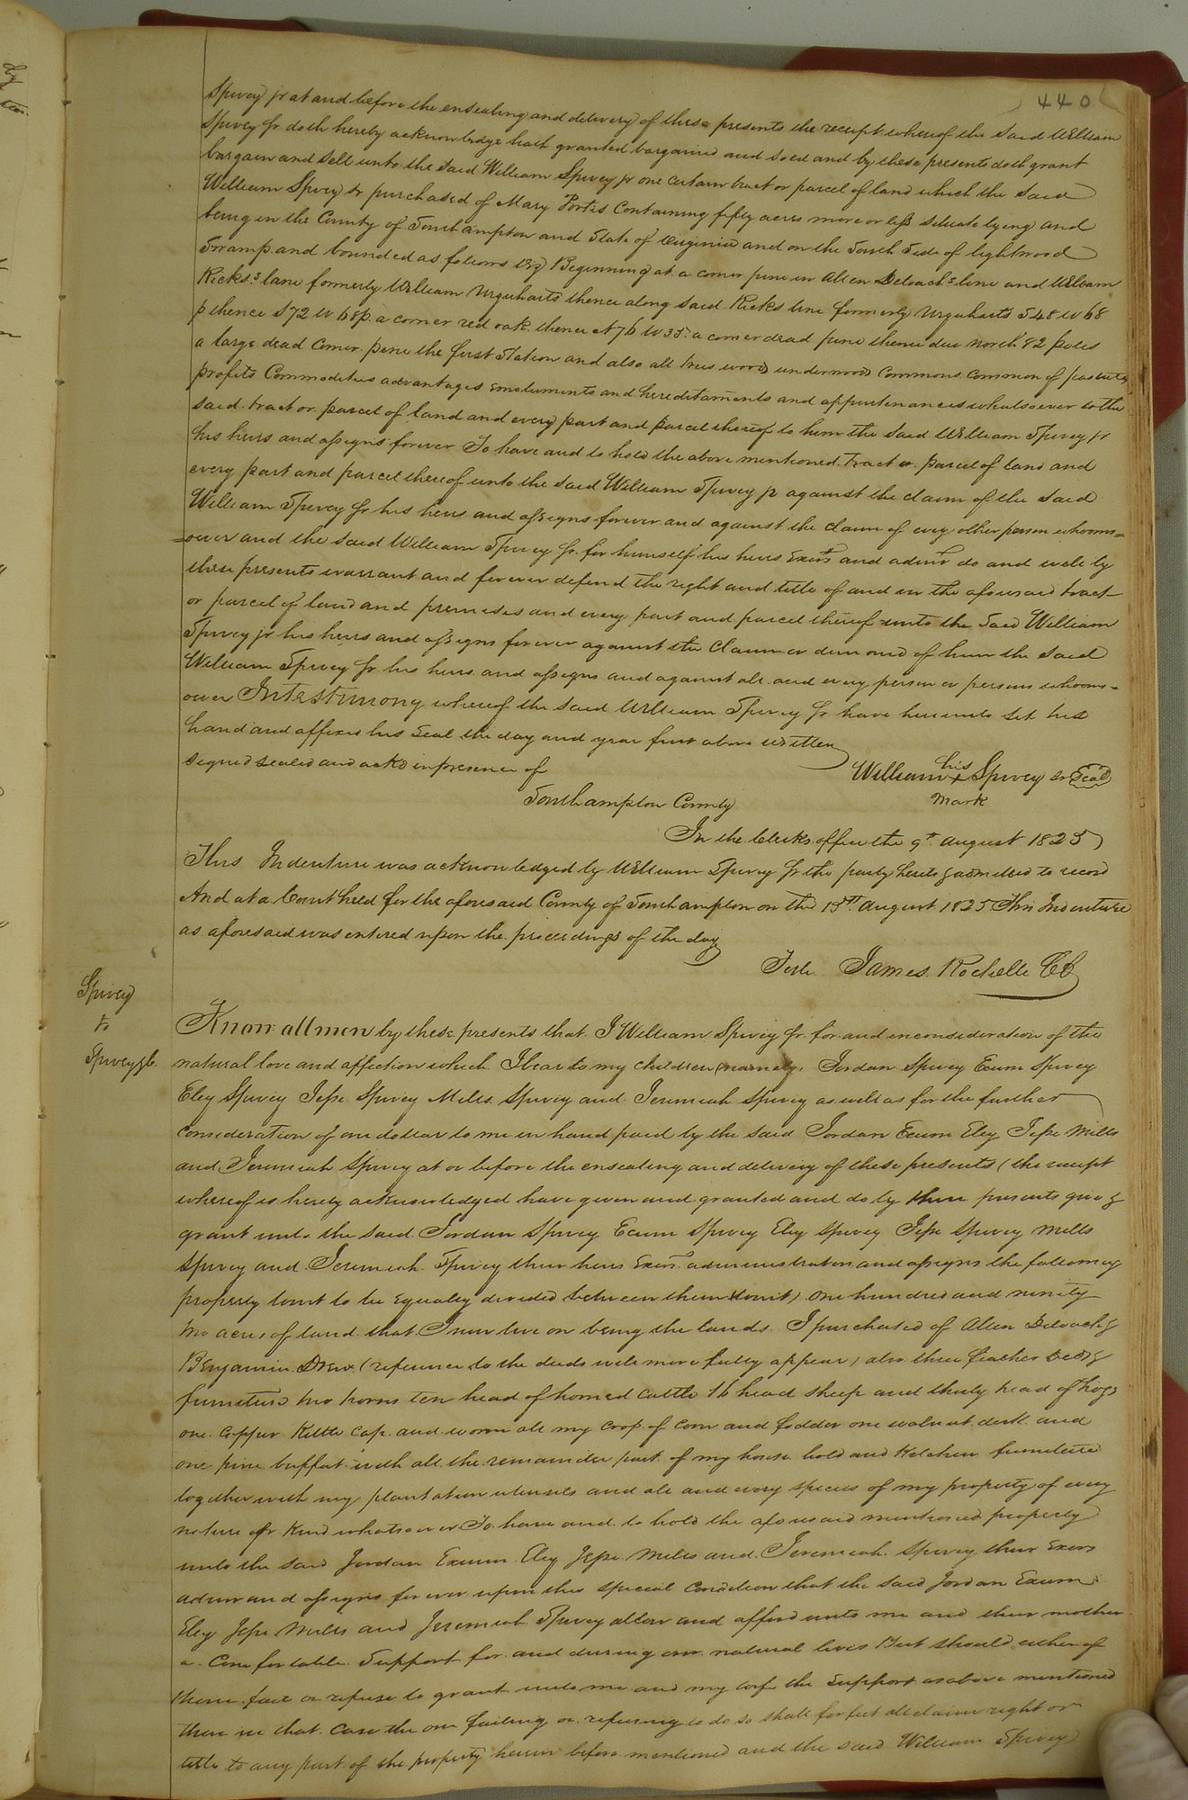 440
Spivey jr at and before the ensealing and delivery of these presents the receipt whereof the said William
Spivey Sr doth hereby acknowledge hath granted bargained and sold and by these presents doth grant
bargain and sell unto the said William Spivey jr one certain tract or parcel of land which the said
William Spivey Sr purchased of Mary Portis Containing fifty acres more or less situate lying and
being in the County of Southampton and State of Virginia and on the South Side of lightwood
Swamp and bounded as follows Viz Beginning at a corner pine in Allen Deloach's line and William
Ricks's lane formerly William Urquharts thence along said Ricks line formerly Urquharts S48 W 68
p thence S72 W 68p a corner red oak thence N76 W 35 a corner dead pine thence due North 82 poles
a large dead Corner pine the first Station and also all trees woods underwoods Commons Common of pasture
profits Commodities advantages emoluments and hereditaments and appurtenances whatsoever to the
said tract or parcel of land and every part and parcel thereof to him the said William Spivey jr
his heirs and assigns forever To have and to hold the above mentioned tract or parcel of land and
every part and parcel thereof unto the said William Spivey jr against the claim of the said
William Spivey Sr his heirs and assigns forever and against the claim of every other person whomso=
=ever and the said William Spivey Sr for himself his heirs Exors and admrs do and will by
these presents warrant and forever defend the right and title of and in the aforesaid tract
or parcel of land and premises and every part and parcel thereof unto the Said William
Spivey jr his heirs and assigns forever against the Claim or demand of him the said
William Spivey Sr his heirs and assigns and against all and every person or persons whomso=
ever In testimony whereof the said William Spivey Sr have hereunto Set his
hand and affixed his Seal the day and year first above written
Signed sealed and ackd in presence of
his
William x Spivey Sr Seal
mark
Southampton County
In the Clerks office the 9th August 1825
This Indenture was acknowledged by William Spivey Sr the party hereto & admitted to record
And at a Court held for the aforesaid County of Southampton on the 15th August 1825 This Indenture
as aforesaid was entered upon the proceedings of the day
Teste James Rochelle CC
Spivey
to
Spivey &c.
Know all men by these presents that I William Spivey Sr for and in consideration of the
natural love and affection which I bear to my children, namely, Jordan Spivey Exum Spivey
Eley Spivey Jesse Spivey Miles Spivey and Jeremiah Spivey as well as for the further
consideration of one dollar to me in hand paid by the said Jordan Exum Eley Jesse Miles
and Jeremiah Spivey at or before the ensealing and delivery of these presents (the receipt
whereof is hereby acknowledged have given and granted and do by these presents give &
grant unto the said Jordan Spivey Exum Spivey Eley Spivey Jesse Spivey Miles
Spivey and Jeremiah Spivey their heirs Exors administrators and assigns the following
property towit to be Equally divided between them (towit) One hundred and ninety
two acres of land that I now live on being the lands I purchased of Allen Deloach &
Benjamin Drew (reference to the deeds will more fully appear) also three feather beds &
furniture two horses ten head of horned Cattle 16 head sheep and thirty head of hogs
one Copper Kettle Cap and worm all my crop of Corn and fodder one walnut desk and
one pine buffat with all the remainder part of my house hold and Kitchen furniture
together with my plantation utensils and all and every species of my property of every
nature or Kind whatsoever To have and to hold the aforesaid mentioned property
unto the said Jordan Exum Eley Jesse Miles and Jeremiah Spivey their Exors
admrs and assigns forever upon this special Condition that the said Jordan Exum
Eley Jesse Miles and Jeremiah Spivey allow and afford unto me and their mother
a Comfortable Support for and during our natural lives But should either of
them fail or refuse to grant unto me and my wife the Support as above mentioned
then in that Case the one failing or refusing to do so shall forfeit all claim right or
title to any part of the property herein before mentioned and the said William Spivey